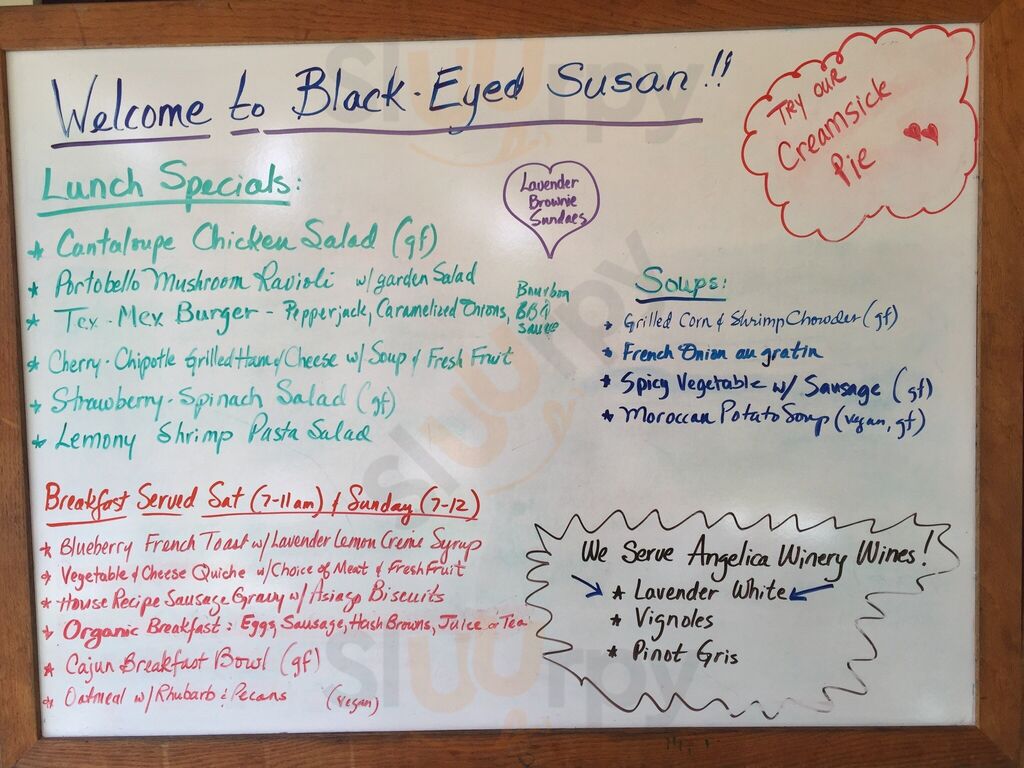 Welcome to Black-Eyed Susan!!
Try our
Creamsick
Pie
Lavender
Brownie
Sundaes
Lunch Specials:
* Cantaloupe Chicken Salad (gf)
* Portobello Mushroom Ravioli w/ garden Salad
* Tex-Mex Burger - Pepperjack, Caramelized Onions, Bourbon
BBQ
Sauce
* Cherry-Chipotle Grilled Ham & Cheese w/ Soup & Fresh Fruit
* Strawberry-Spinach Salad (gf)
* Lemony Shrimp Pasta Salad
Soups:
* Grilled Corn & Shrimp Chowder (gf)
* French Onion au gratin
* Spicy Vegetable w/ Sausage (gf)
* Moroccan Potato Soup (vegan, gf)
Breakfast Served Sat (7-11am) & Sunday (7-12)
* Blueberry French Toast w/ Lavender Lemon Creme Syrup
* Vegetable & Cheese Quiche w/ Choice of Meat & Fresh Fruit
* House Recipe Sausage Gravy w/ Asiago Biscuits
* Organic Breakfast: Eggs, Sausage, Hash Browns, Juice or Tea
* Cajun Breakfast Bowl (gf)
* Oatmeal w/ Rhubarb & Pecans (vegan)
We Serve Angelica Winery Wines!
* Lavender White
* Vignoles
* Pinot Gris
sluurpy
sluurpy
sluurpy